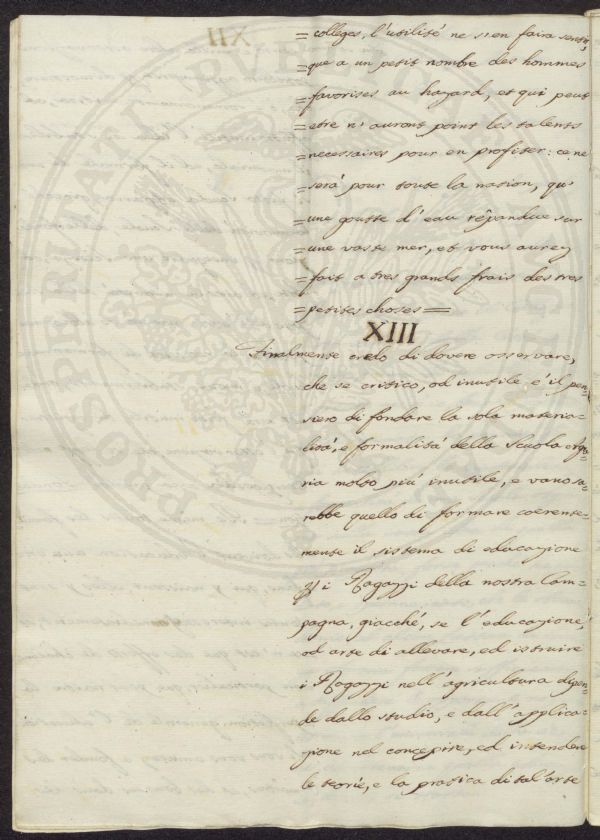 =colleges, l'utilité ne s'en faira sentir,
=que a un petit nombre des hommes
=favorises au hazard, et qui peut
=etre n'auront point les talents
=necessaires pour en profiter: ce ne
=serà pour toute la nasion, qu'
=une goutte d'eau rêpandue sur
=une vaste mer, et vous aurez
=fait a tres grands frais des tres
=petites choses=
XIII
Finalmente credo di dovere osservare,
che se critico, od inutile é il pen-
siero di fondare la sola materia-
litá, e formalitá della Scuola Agra-
ria molto piú inutile, e vano sa-
rebbe quello di formare coerente-
mente il sistema di educazione
i Ragazzi della nostra Cam-
pagna, giacché, se l'educazione,
od arte di allevare, ed istruire
i Ragazzi nell'agricultura dipen-
de dallo studio, e dall'applica-
zione nel concepire, ed intendere
le teorie, e la pratica di tal'arte
XII
PROSPERMATI PVBLICAE AVGENDAE